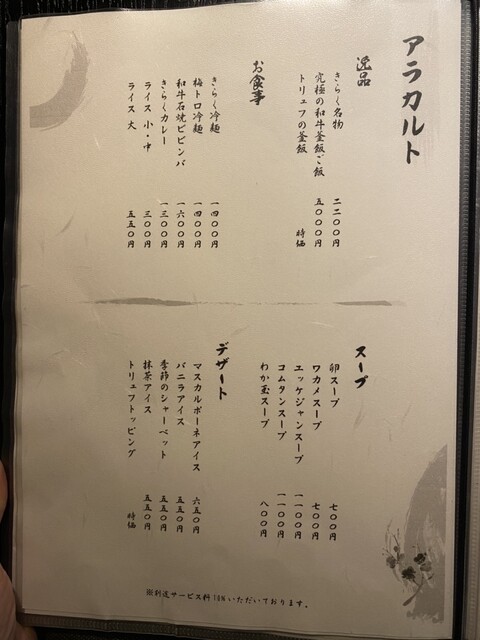 アラカルト
逸品
きらく名物 二二〇〇円
究極の和牛釜飯ご飯 五〇〇〇円
トリュフの釜飯 特価
お食事
きらく冷麺 一四〇〇円
梅トロ冷麺 一四〇〇円
和牛石焼ビビンバ 一六〇〇円
きらくカレー 一三〇〇円
ライス 小・中 三〇〇円
ライス 大 五五〇円
スープ
卵スープ 七〇〇円
ワカメスープ 七〇〇円
ユッケジャンスープ 一一〇〇円
コムタンスープ 一一〇〇円
わか玉スープ 八〇〇円
デザート
マスカルポーネアイス 六五〇円
バニラアイス 五五〇円
季節のシャーベット 五五〇円
抹茶アイス 五五〇円
トリュフトッピング 特価
※別途サービス料10%いただいております。